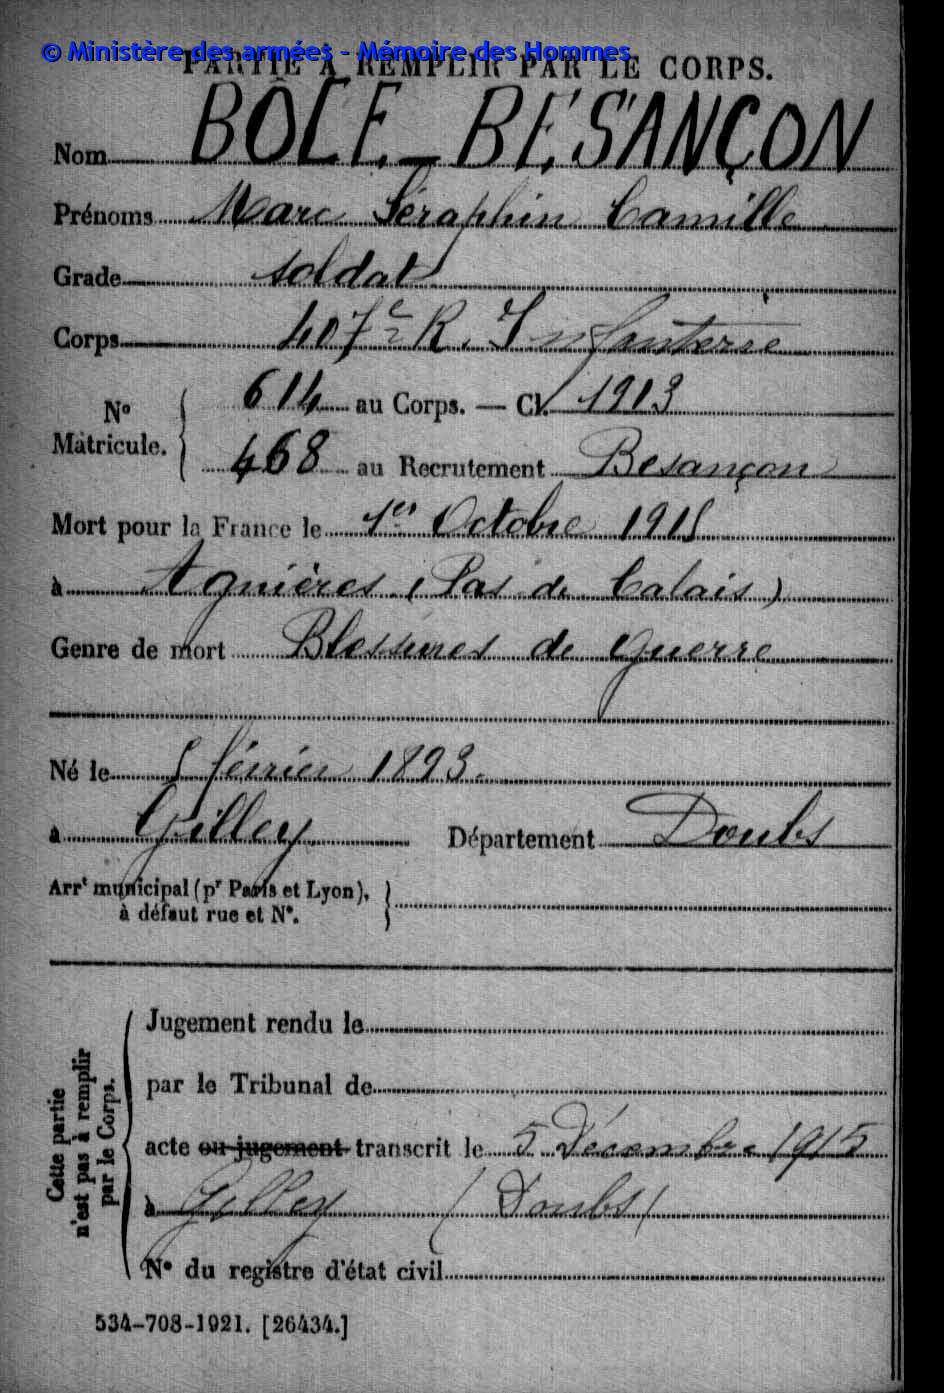 © Ministère des armées - Mémoire des Hommes
PARTIE A REMPLIR PAR LE CORPS.
Nom BÔLE-BESANÇON
Prénoms Marc Séraphin Camille
Grade soldat
Corps 407e R. Infanterie
No Matricule. { 614 au Corps. — Cl. 1913
468 au Recrutement Besançon
Mort pour la France le 1er Octobre 1915
à Agnières (Pas de Calais)
Genre de mort Blessures de guerre
Né le 5 février 1893.
à Gilley Département Doubs
Arrt municipal (pr Paris et Lyon), à défaut rue et No. }
Cette partie n'est pas à remplir par le Corps.
Jugement rendu le
par le Tribunal de
acte ou jugement transcrit le 5 Décembre 1915
à Gilley (Doubs)
No du registre d'état civil
534-708-1921. [26434.]